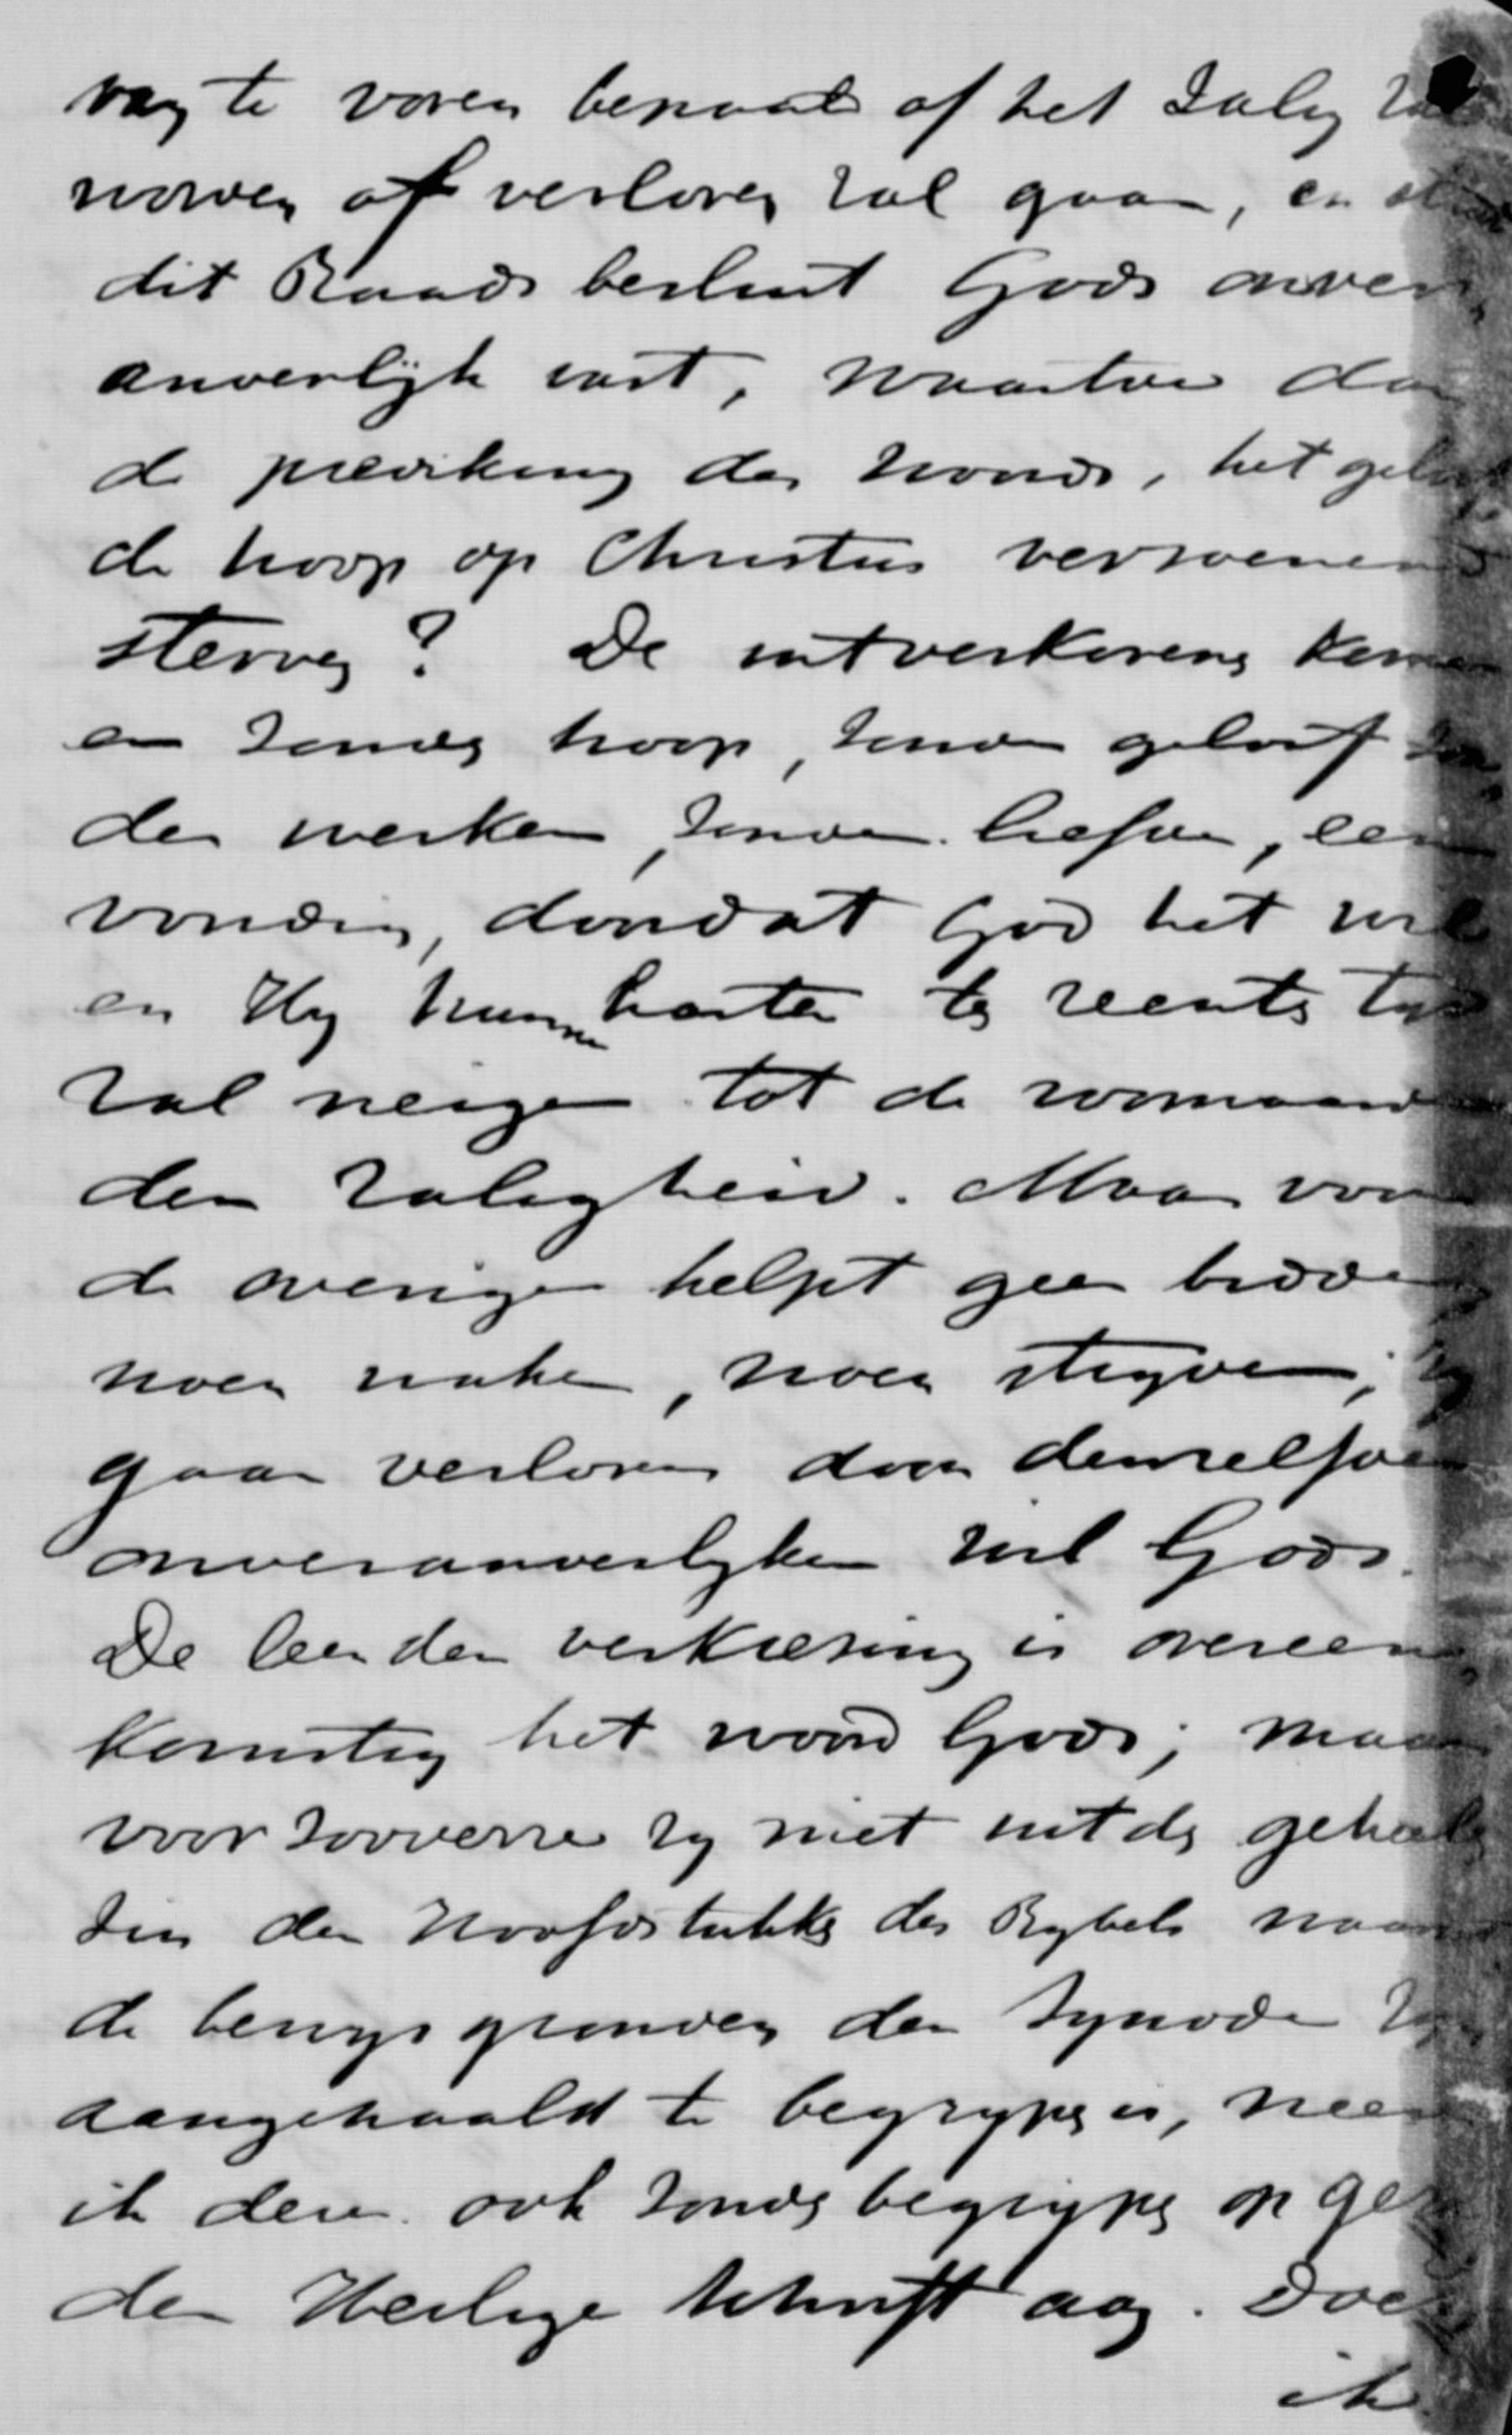 van te voren bepaald of het Zalig zal
worden of verloren zal gaan, en
dit Raads besluit Gods onver
anderlijk vast, waartoe dan
de prediking des woords, het geloof
de hoop op Christus verzoenend
sterven? De uitverkorenen komen
er zonder hoop, zonder geloof zon
der werken, zonder liefde, een
voudig, doordat God het wil
en Hy hunne harten te rechter tyd
zal neigen tot de voorwaar
den zaligheid. Maar voor
de overigen helpt geen bidden
noch waken, noch stryden; zy
gaan verloren door denzelfden
onveranderlyken wil Gods.
De leer der verkiezing is overeen
komstig het woord Gods; maar
voor zooverre zy niet uit den geheelen
zin der Hoofdstukken des Bybels waaruit
de bewys gronden der Synode zyn
aangehaald te begrypen is, neem
ik deze ook zonder begrypen op gezag
der Heilige Schrift aan. Doch
ik